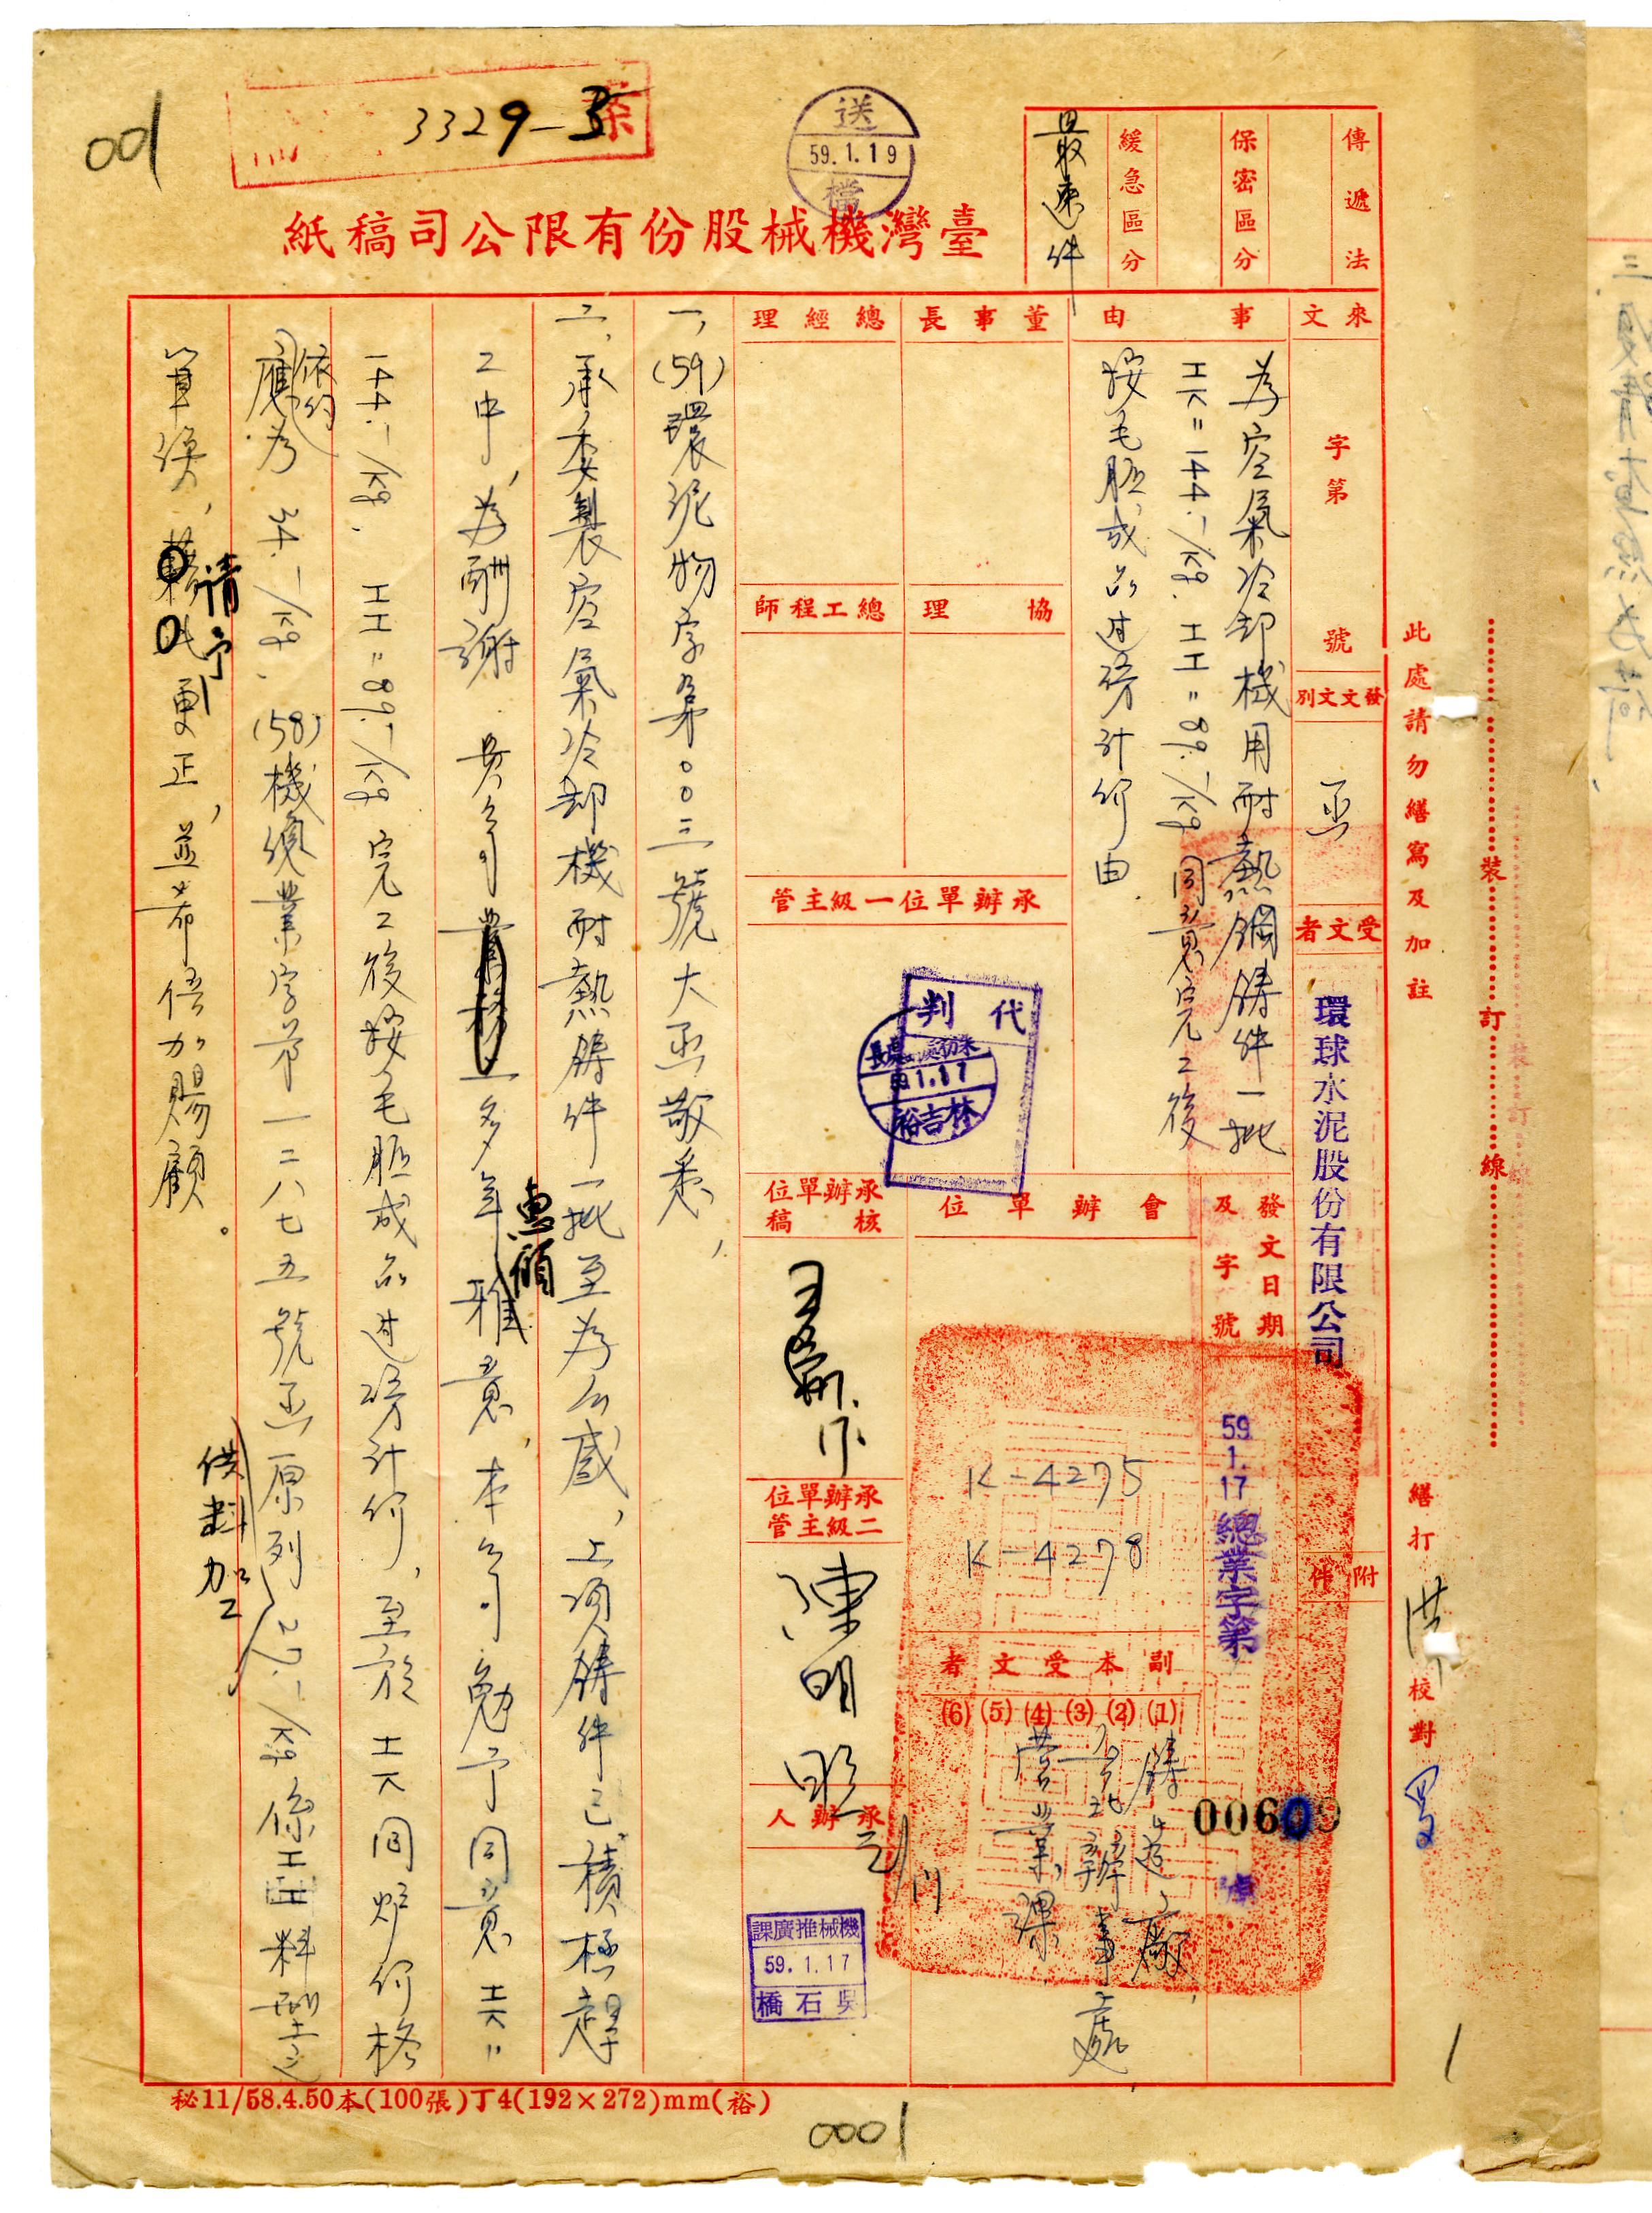 001
3329-3
送
59.1.19
檔
臺灣機械股份有限公司稿紙
傳遞法
保密區分
緩急區分
最速件
來文
字第
號
發文文別
函
受文者
環球水泥股份有限公司
附件
事由
為空氣冷却機用耐熱鋼鑄件一批
144.-/kg. 89.-/kg 同意完工後
按毛胚成品过磅計價由.
董事長
總經理
協理
總工程師
承辦單位一級主管
代判
59.1.17
林吉裕
發文日期及字號
59.1.17 總業字第
00609
號
會辦單位
K-4275
K-4278
副本受文者
(1)(2)(3)(4)(5)(6)
鑄造廠,
台北辦事處,
營業課
承辦單位核稿
承辦單位二級主管
陳明
承辦人
機械推廣課
59.1.17
吳石橋
一,(59)環泥物字第〇〇三號大函敬悉,
二,承委製空氣冷却機耐熱鑄件一批至为公感,上項鑄件已積極趕
工中,为酬謝 貴公司多年惠顧雅意,本公司勉予同意
144.-/kg. 89.-/kg 完工後按毛胚成品过磅計价,至於 同炉价格
依約
應为34.-/kg.(58)機總業字第一二八七五號函原列27.-/kg係
供料加工
單價,請予更正,並希倍加賜顧。
此處請勿繕寫及加註
裝
訂
線
繕打
洪
校對
秘11/58.4.50本(100張)丁4(192×272)mm(裕)
0001